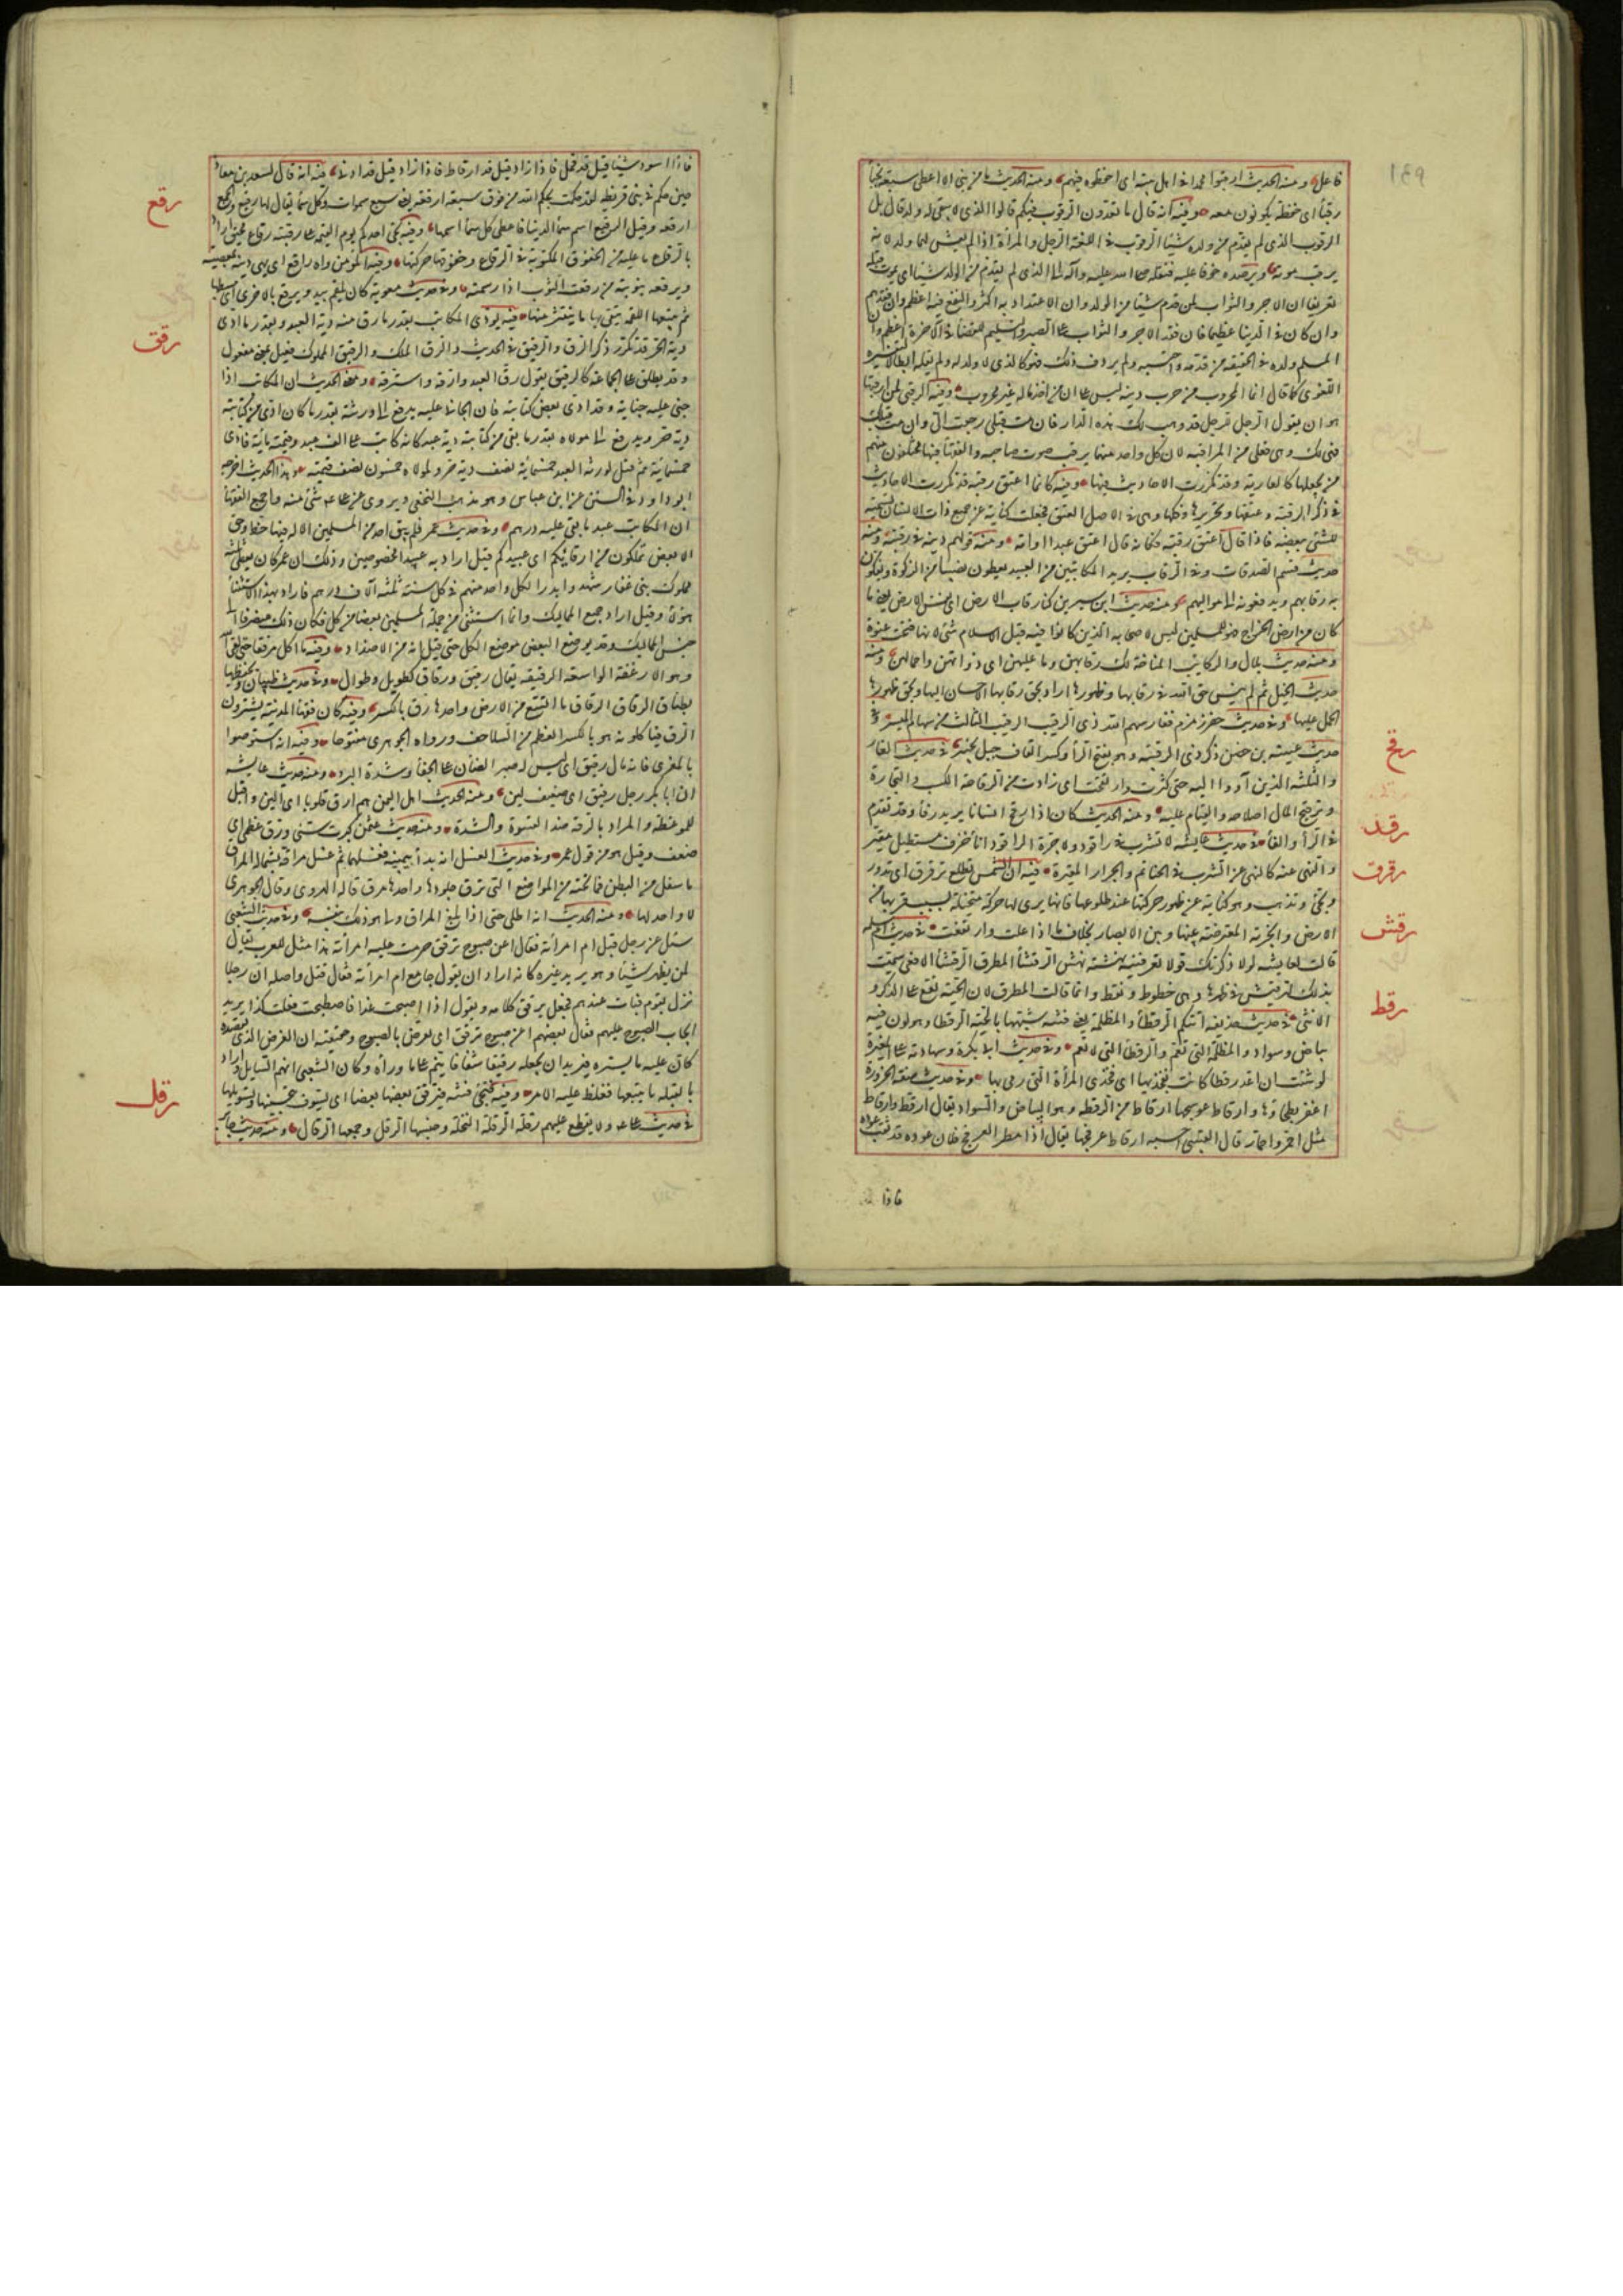 ١٤٩
فاعل ومنه الحديث ارقبوا محمدا في اهل بيته اي احفظوه فيهم ومنه الحديث ما من نبي الا اعطي سبعة نجباء
رقباء اي حفظة يكونون معه وفيه انه قال ما تعدون الرقوب فيكم قالوا الذي لا يبقى له ولد قال بل
الرقوب الذي لم يقدم من ولده شيئا الرقوب في اللغة الرجل والمرأة اذا لم يعش لهما ولد لانه
يرقب موته ويرصده خوفا عليه فنقله صلى الله عليه وآله الى الذي لم يقدم من الولد شيئا اي يموت قبله
تعريفا ان الاجر والثواب لمن قدم شيئا من الولد وان الاعتداد به اكثر والنفع فيه اعظم وان فقدهم
وان كان في الدنيا عظيما فان فقد الاجر والثواب على الصبر والتسليم للقضاء في الآخرة اعظم وان
المسلم ولده في الحقيقة من قدمه واحتسبه ولم يرزق ذلك فهو كالذي لا ولد له ولم يقله ابطالا لتفسيره
اللغوي كما قال انما المحروب من حرب دينه ليس على ان من اخذ ماله غير محروب وفيه الرقبى لمن ارقبها
هو ان يقول الرجل للرجل قد وهبت لك هذه الدار فان مت قبلي رجعت الي وان مت قبلك
فهي لك وهي فعلى من المراقبة لان كل واحد منهما يرقب موت صاحبه والفقهاء فيها مختلفون منهم
من يجعلها كالعارية وقد تكررت الاحاديث فيها وفيه كانما اعتق رقبة قد تكررت الاحاديث
في ذكر الرقبة وعتقها وتحريرها وفكها وهي في الاصل العنق فجعلت كناية عن جميع ذات الانسان تسمية
للشيء ببعضه فاذا قال اعتق رقبة فكانه قال اعتق عبدا او امة ومنه قولهم دينه في رقبته ومنه
حديث قسم الصدقات وفي الرقاب يريد المكاتبين من العبيد يعطون نصيبا من الزكوة يفكون
به رقابهم ويدفعونه الى مواليهم ومنه حديث ابن سيرين لنا رقاب الارض اي نفس الارض يعني ما
كان من ارض الخراج فهو للمسلمين ليس لاصحابه الذين كانوا فيه قبل الاسلام شيء لانها فتحت عنوة
ومنه حديث بلال والركائب المناخة لك رقابهن وما عليهن اي ذواتهن واحمالهن ومنه
حديث الخيل ثم لم ينس حق الله في رقابها وظهورها اراد بحق رقابها الاحسان اليها وبحق ظهورها
الحمل عليها وفي حديث حفر زمزم فغار سهم الله ذي الرقيب الرقيب الثالث من سهام الميسر وفي
حديث عيينة بن حصن ذكر ذي الرقيبة وهو بفتح الراء وكسر القاف جبل بخيبر في حديث الغار
والثلثة الذين آووا اليه حتى كثرت وارتقحت اي زادت من الرقاحة الكسب والتجارة
وترقيح المال اصلاحه والقيام عليه ومنه الحديث كان اذا رقح انسانا يريد رفأ وقد تقدم
في الراء والفاء في حديث عايشة لا تشرب في راقود ولا جرة الراقود اناء خزف مستطيل مقير
والنهي عنه كالنهي عن الشرب في الحناتم والجرار المقيرة فيه ان الشمس تطلع ترقرق اي تدور
وتجئ وتذهب وهو كناية عن ظهور حركتها عند طلوعها فانها يرى لها حركة متخيلة بسبب قربها من
الارض والابخرة المعترضة بينها وبين الابصار بخلاف ما اذا علت وارتفعت في حديث ام سلمة
قالت لعايشة لو لا ذكرتك قولا تعرفينه نهشته نهش الرقشاء المطرق الرقشاء الافعى سميت
بذلك لترقيش في ظهرها وهي خطوط ونقط وانما قالت المطرق لان الحية تقع على الذكر و
الانثى في حديث حذيفة اتتكم الرقطاء والمظلمة يعني فتنة شبهها بالحية الرقطاء وهو لون فيه
بياض وسواد والمظلمة التي تعم والرقطاء التي لا تعم وفي حديث ابي بكرة وشهادته على المغيرة
لو شئت ان اعد رقطا كانت بفخذيها اي فخذي المرأة التي رمي بها وفي حديث صفة الحزورة
اغفر بطحاؤها وارقاط عوسجها ارقاط من الرقطة وهو البياض والسواد يقال ارقط وارقاط
مثل احمر واحمار قال القتيبي احسبه ارقاط عرفجها يقال اذا مطر العرفج فلان عوده قد ثقب عوده
فاذا
رقح
رقد
رقرق
رقش
رقط
فاذا اسود شيئا قيل قد قمل فاذا زاد قيل قد ارقاط فاذا زاد قيل قد ادبى فيه انه قال لسعد بن معاذ
حين حكم في بني قريظة لقد حكمت بحكم الله من فوق سبعة ارقعة يعني سبع سموات وكل سماء يقال لها رقيع والجمع
ارقعة وقيل الرقيع اسم سماء الدنيا فاعطى كل سماء اسمها وفيه يجئ احدكم يوم القيمة على رقبته رقاع تخفق اراد
بالرقاع ما عليه من الحقوق المكتوبة في الرقاع وخفوقها حركتها وفيه المؤمن واه راقع اي يهي دينه بمعصيته
ويرقعه بتوبته من رقعت الثوب اذا رممته وفي حديث معوية كان يلقم بيد ويرقع بالاخرى اي يبسطها
ثم يتبعها اللقمة يتقي بها ما ينتثر منها فيه يودى المكاتب بقدر ما رق منه دية العبد وبقدر ما ادى
دية الحر قد تكرر ذكر الرق والرقيق في الحديث والرق الملك والرقيق المملوك فعيل بمعنى مفعول
وقد يطلق على الجماعة كالرفيق يقول رق العبد وارقه واسترقه ومعنى الحديث ان المكاتب اذا
جني عليه جناية وقد ادى بعض كتابته فان الجاني عليه يدفع الى ورثته بقدر ما كان ادى من كتابته
دية حر ويدفع الى مولاه بقدر ما بقي من كتابته دية عبد كانه كاتب على الف وقيمته مائة فادى
خمسمائة ثم قتل لورثة العبد خمسمائة نصف دية حر ولمولاه خمسون نصف قيمته وهذا الحديث اخرجه
ابو داود في السنن عن ابن عباس وهو مذهب النخعي ويروى عن علي شئ منه واجمع الفقهاء
ان المكاتب عبد ما بقي عليه درهم وفي حديث عمر فلم يبق احد من المسلمين الا له فيها حظ وحق
الا بعض من تملكون من ارقائكم اي عبيدكم قيل اراد به عبيدا مخصوصين وذلك ان عمر كان يعطي ثلثة
مماليك لبني غفار شهدوا بدرا لكل واحد منهم في كل سنة ثلثة آلاف درهم فاراد بهذا الاستثناء
هؤلاء وقيل اراد جميع المماليك وانما استثنى من جملة المسلمين بعضا من كل فكان ذلك منصرفا الى
جنس المماليك وقد يوضع البعض موضع الكل حتى قيل انه من الاضداد وفيه ما اكل مرققا حتى لقي الله
وهو الارغفة الواسعة الرقيقة يقال رقيق ورقاق كطويل وطوال وفي حديث ظبيان ويخفضها
بطنان الرقاق الرقاق ما اتسع من الارض واحدها رق بالكسر وفيه كان فقهاء المدينة يشترون
الرق فياكلونه هو بالكسر العظيم من السلاحف ورواه الجوهري مفتوحا وفيه انه استوصوا
بالمعزى فانه مال رقيق اي ليس له صبر الضان على الجفاء وشدة البرد ومنه حديث عايشة
ان ابا بكر رجل رقيق اي ضعيف لين ومنه الحديث اهل اليمن هم ارق قلوبا اي الين واقبل
للموعظة والمراد بالرقة ضد القسوة والشدة ومنه حديث عثمن كبرت سني ورق عظمي اي
ضعف وقيل هو من قول عمر وفي حديث الغسل انه بدأ بيمينه فغسلها ثم غسل مراقه بشماله المراق
ما سفل من البطن فما تحته من المواضع التي ترق جلودها واحدها مرق قاله الهروي وقال الجوهري
لا واحد لها ومنه الحديث انه اطلى حتى اذا بلغ المراق ولي هو ذلك بنفسه وفي حديث الشعبي
سئل عن رجل قبل ام امرأته فقال اعن صبوح ترقق حرمت عليه امرأته هذا مثل للعرب يقال
لمن يظهر شيئا وهو يريد غيره كانه اراد ان يقول جامع ام امرأته فقال قبل واصله ان رجلا
نزل بقوم فبات عندهم فجعل يرقق كلامه ويقول اذا اصبحت غدا فاصطبحت فعلت كذا يريد
ايجاب الصبوح عليهم فقال بعضهم اعن صبوح ترقق اي تعرض بالصبوح وحقيقته ان الغرض الذي يقصده
كان عليه ما يستره فيريد ان يجعله رقيقا شفافا ينم على ما وراءه وكان الشعبي اتهم السايل واراد
بالقبلة ما يتبعها فغلظ عليه الامر وفيه وتجئ فتنة فيرقق بعضها بعضا اي يشوق بتحسينها وتسويلها
في حديث علي ولا يقطع عليهم رقلة الرقلة النخلة وجنسها الرقل وجمعها الرقال ومنه حديث جابر
رقع
رقق
رقل